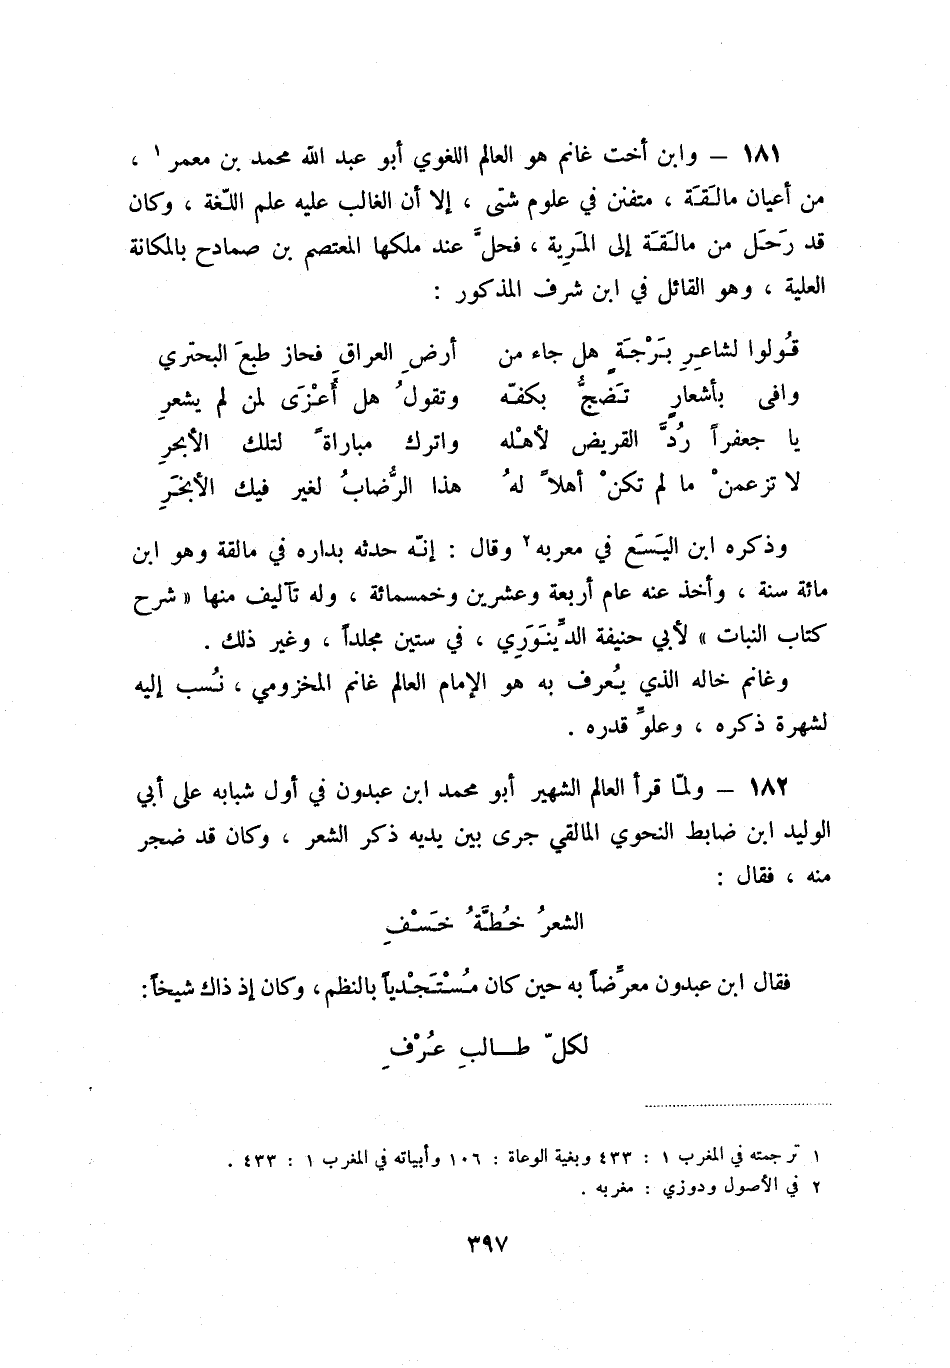 ١٨١ – وابن أخت غانم هو العالم اللغوي أبو عبد الله محمد بن معمر ١ ،
من أعيان مالَقَة ، متفنن في علوم شتّى ، إلا أن الغالب عليه علم اللّغة ، وكان
قد رَحَل من مالَقَة إلى المَرِية ، فحلَّ عند ملكها المعتصم بن صمادح بالمكانة
العلية ، وهو القائل في ابن شرف المذكور :
قُولوا لشاعِرِ بَرْجَةٍ هل جاء من أرضِ العراقِ فحاز طبعَ البحتري
وافى بأشعارٍ تَضجُّ بكفّه وتقولُ هل أُعْزَى لمن لم يشعرِ
يا جعفراً رُدَّ القريض لأهْله واترك مباراةً لتلك الأبحرِ
لا تزعمنْ ما لم تكنْ أهلاً لهُ هذا الرُّضابُ لغير فيك الأبخَرِ
وذكره ابن اليَسَع في معربه ٢ وقال : إنّه حدثه بداره في مالقة وهو ابن
مائة سنة ، وأخذ عنه عام أربعة وعشرين وخمسمائة ، وله تآليف منها « شرح
كتاب النبات » لأبي حنيفة الدِّينَوَرِي ، في ستين مجلداً ، وغير ذلك .
وغانم خاله الذي يُعرف به هو الإمام العالم غانم المخزومي ، نُسب إليه
لشهرة ذكره ، وعلوِّ قدره .
١٨٢ – ولمّا قرأ العالم الشهير أبو محمد ابن عبدون في أول شبابه على أبي
الوليد ابن ضابط النحوي المالقي جرى بين يديه ذكر الشعر ، وكان قد ضجر
منه ، فقال :
الشعرُ خُطَّةُ خَسْفِ
فقال ابن عبدون معرِّضاً به حين كان مُسْتَجْدياً بالنظم ، وكان إذ ذاك شيخاً :
لكلّ طـالبِ عُرْفِ
١ ترجمته في المغرب ١ : ٤٣٣ وبغية الوعاة : ١٠٦ وأبياته في المغرب ١ : ٤٣٣ .
٢ في الأصول ودوزي : مغربه .
٣٩٧